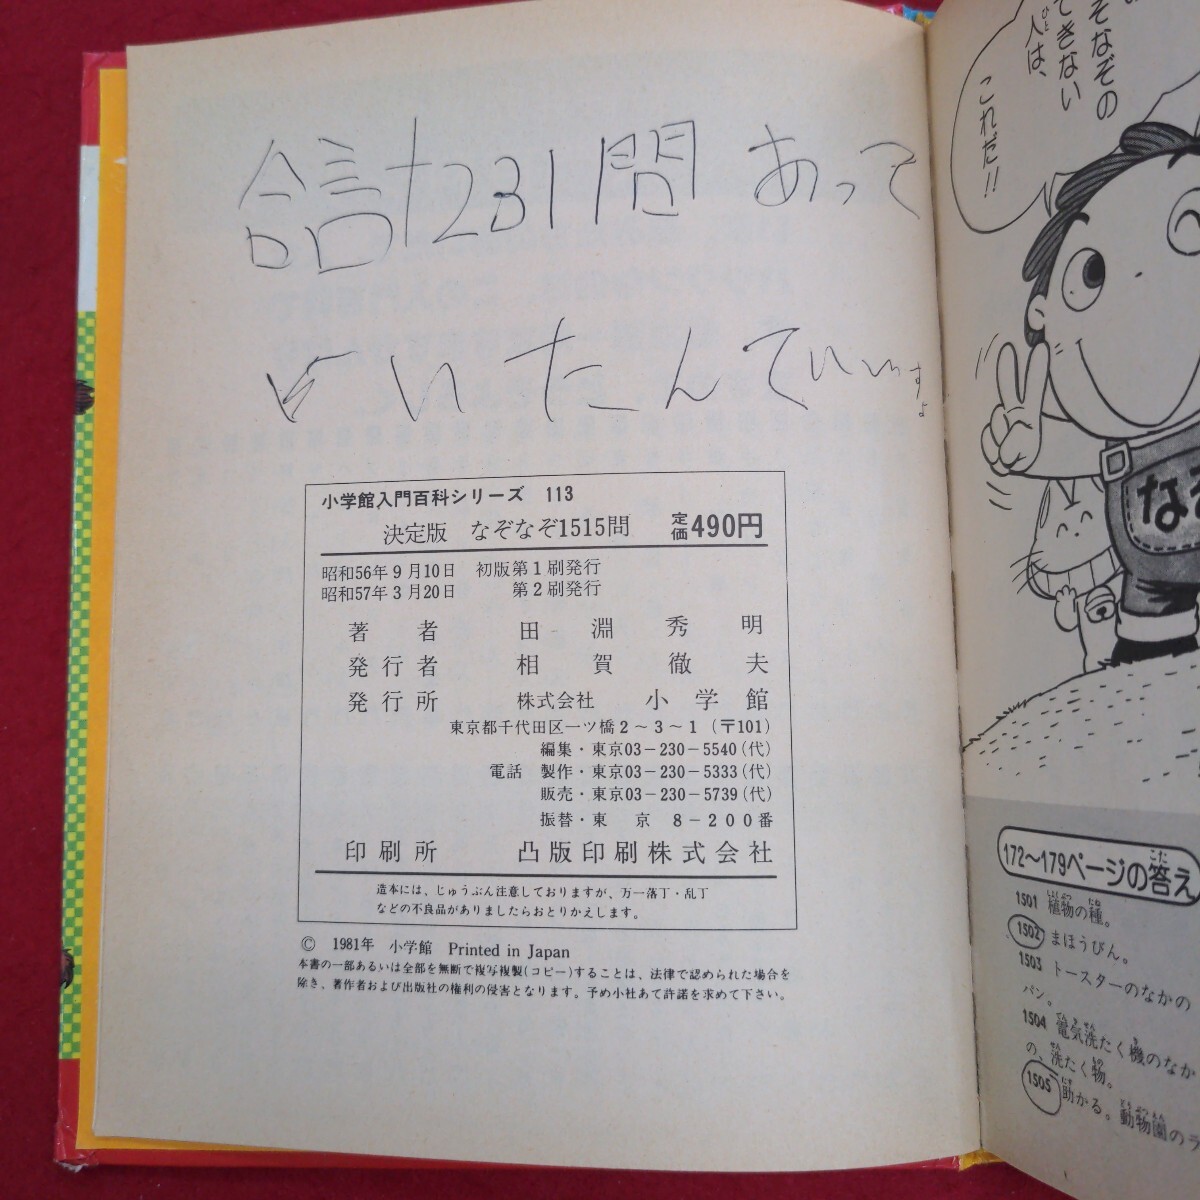 合計1231問あって
といたんでいいすよ
小学館入門百科シリーズ 113
決定版 なぞなぞ1515問 定価490円
昭和56年9月10日 初版第1刷発行
昭和57年3月20日 第2刷発行
著者 田淵秀明
発行者 相賀徹夫
発行所 株式会社 小学館
東京都千代田区一ツ橋2～3～1(〒101)
編集・東京03-230-5540(代)
電話 製作・東京03-230-5333(代)
販売・東京03-230-5739(代)
振替・東京 8-200番
印刷所 凸版印刷株式会社
造本には、じゅうぶん注意しておりますが、万一落丁・乱丁
などの不良品がありましたらおとりかえします。
© 1981年 小学館 Printed in Japan
本書の一部あるいは全部を無断で複写複製(コピー)することは、法律で認められた場合を
除き、著作者および出版社の権利の侵害となります。予め小社あて許諾を求めて下さい。
そなぞの
できない
人は、
これだ!!
172～179ページの答え
1501 植物の種。
1502 まほうびん。
1503 トースターのなかの
パン。
1504 電気洗たく機のなか
の、洗たく物。
1505 助かる。動物園のラ